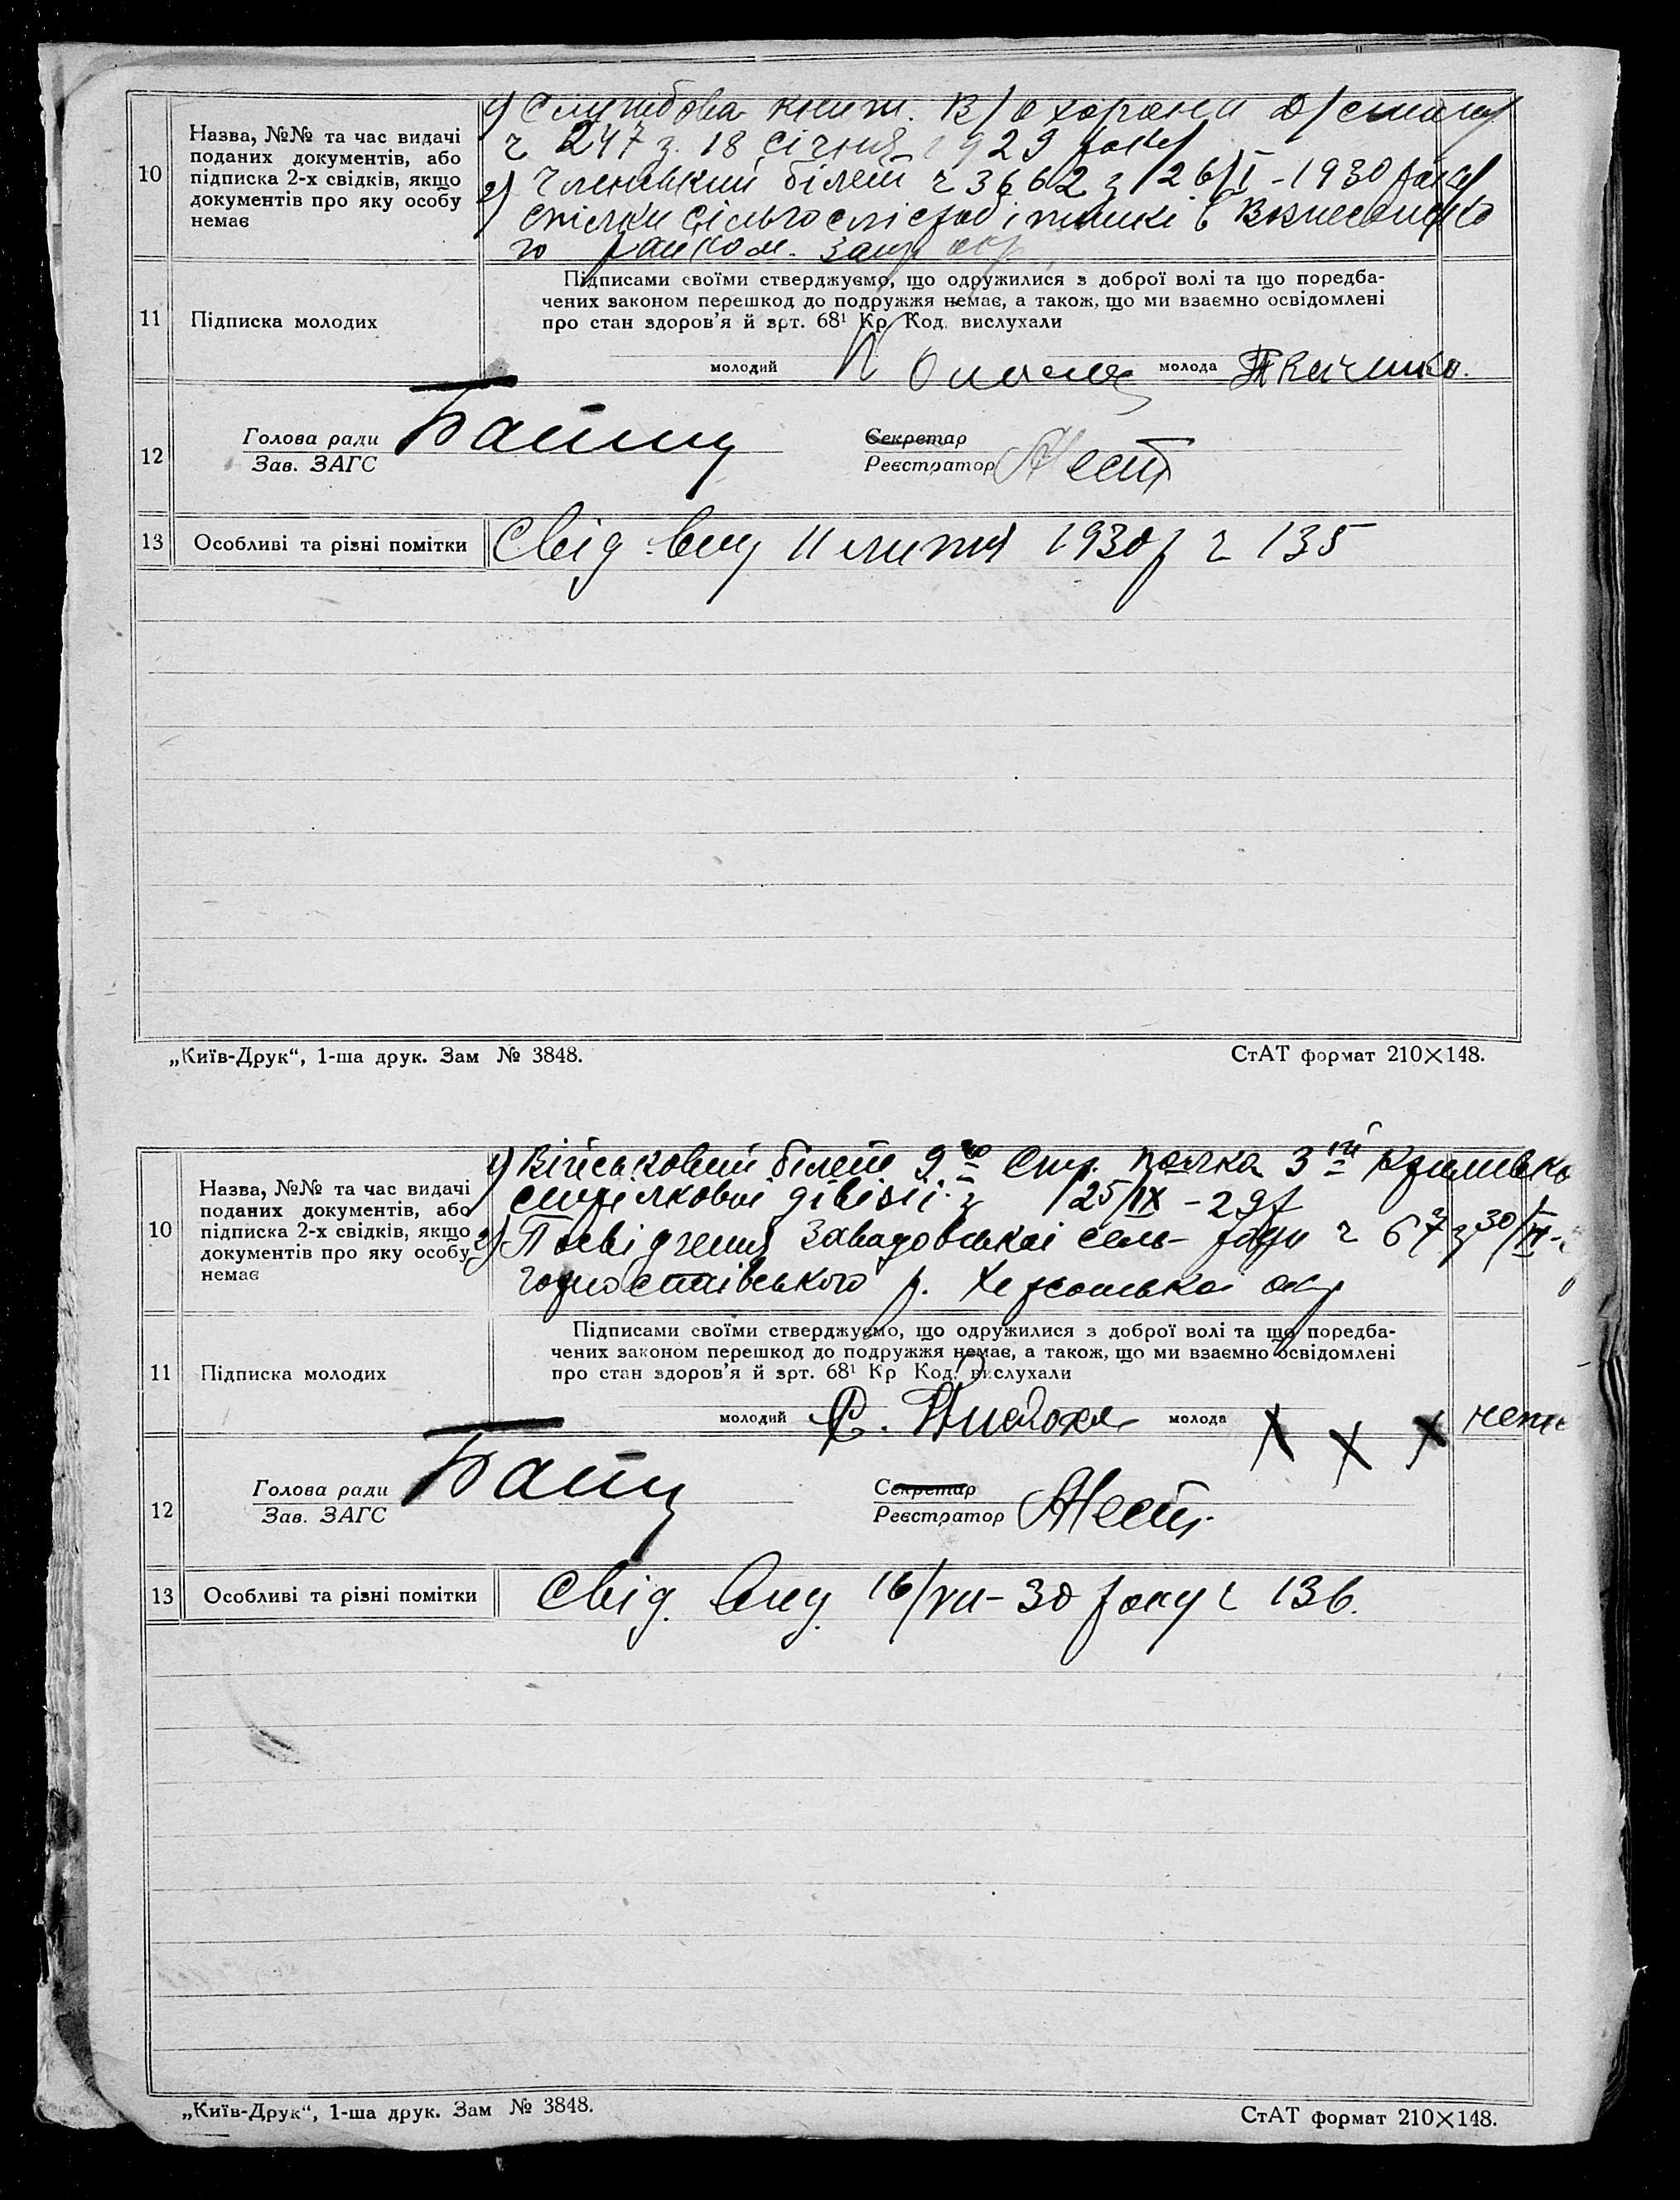 10
Назва, №№ та час видачі
поданих документів, або
підписка 2-х свідків, якщо
документів про яку особу
немає
1) Службова книж. В/охорони
ч 247 з 18 січня 1929 року
2) Членський білет ч 3662 з 26/I - 1930 року
спілки
го райком.
11
Підписка молодих
Підписами своїми стверджуємо, що одружилися з доброї волі та що поредба-
чених законом перешкод до подружжя немає, а також, що ми взаємно освідомлені
про стан здоров'я й арт. 68¹ Кр. Код. вислухали
молодий молода Ткаченко.
12
Голова ради
Зав. ЗАГС
Секретар
Реєстратор
13
Особливі та різні помітки
Свід. вид 11 липня 1930 р ч 135
„Київ-Друк“, 1-ша друк. Зам № 3848.
СтАТ формат 210×148.
10
Назва, №№ та час видачі
поданих документів, або
підписка 2-х свідків, якщо
документів про яку особу
немає
1) Військовий білет 9го Стр. полка 3ій
стрілковоі дівізіі з 25/IX - 29 р
2) Посвідчення Завадовськоі сель- ради ч 67 з 30/
Горностаівського р. Херсонськоі окр
11
Підписка молодих
Підписами своїми стверджуємо, що одружилися з доброї волі та що поредба-
чених законом перешкод до подружжя немає, а також, що ми взаємно освідомлені
про стан здоров'я й арт. 68¹ Кр Код. вислухали
молодий молода X X X
12
Голова ради
Зав. ЗАГС
Секретар
Реєстратор
13
Особливі та різні помітки
Свід. вид. 16/VII - 30 року ч 136.
„Київ-Друк“, 1-ша друк. Зам № 3848.
СтАТ формат 210×148.